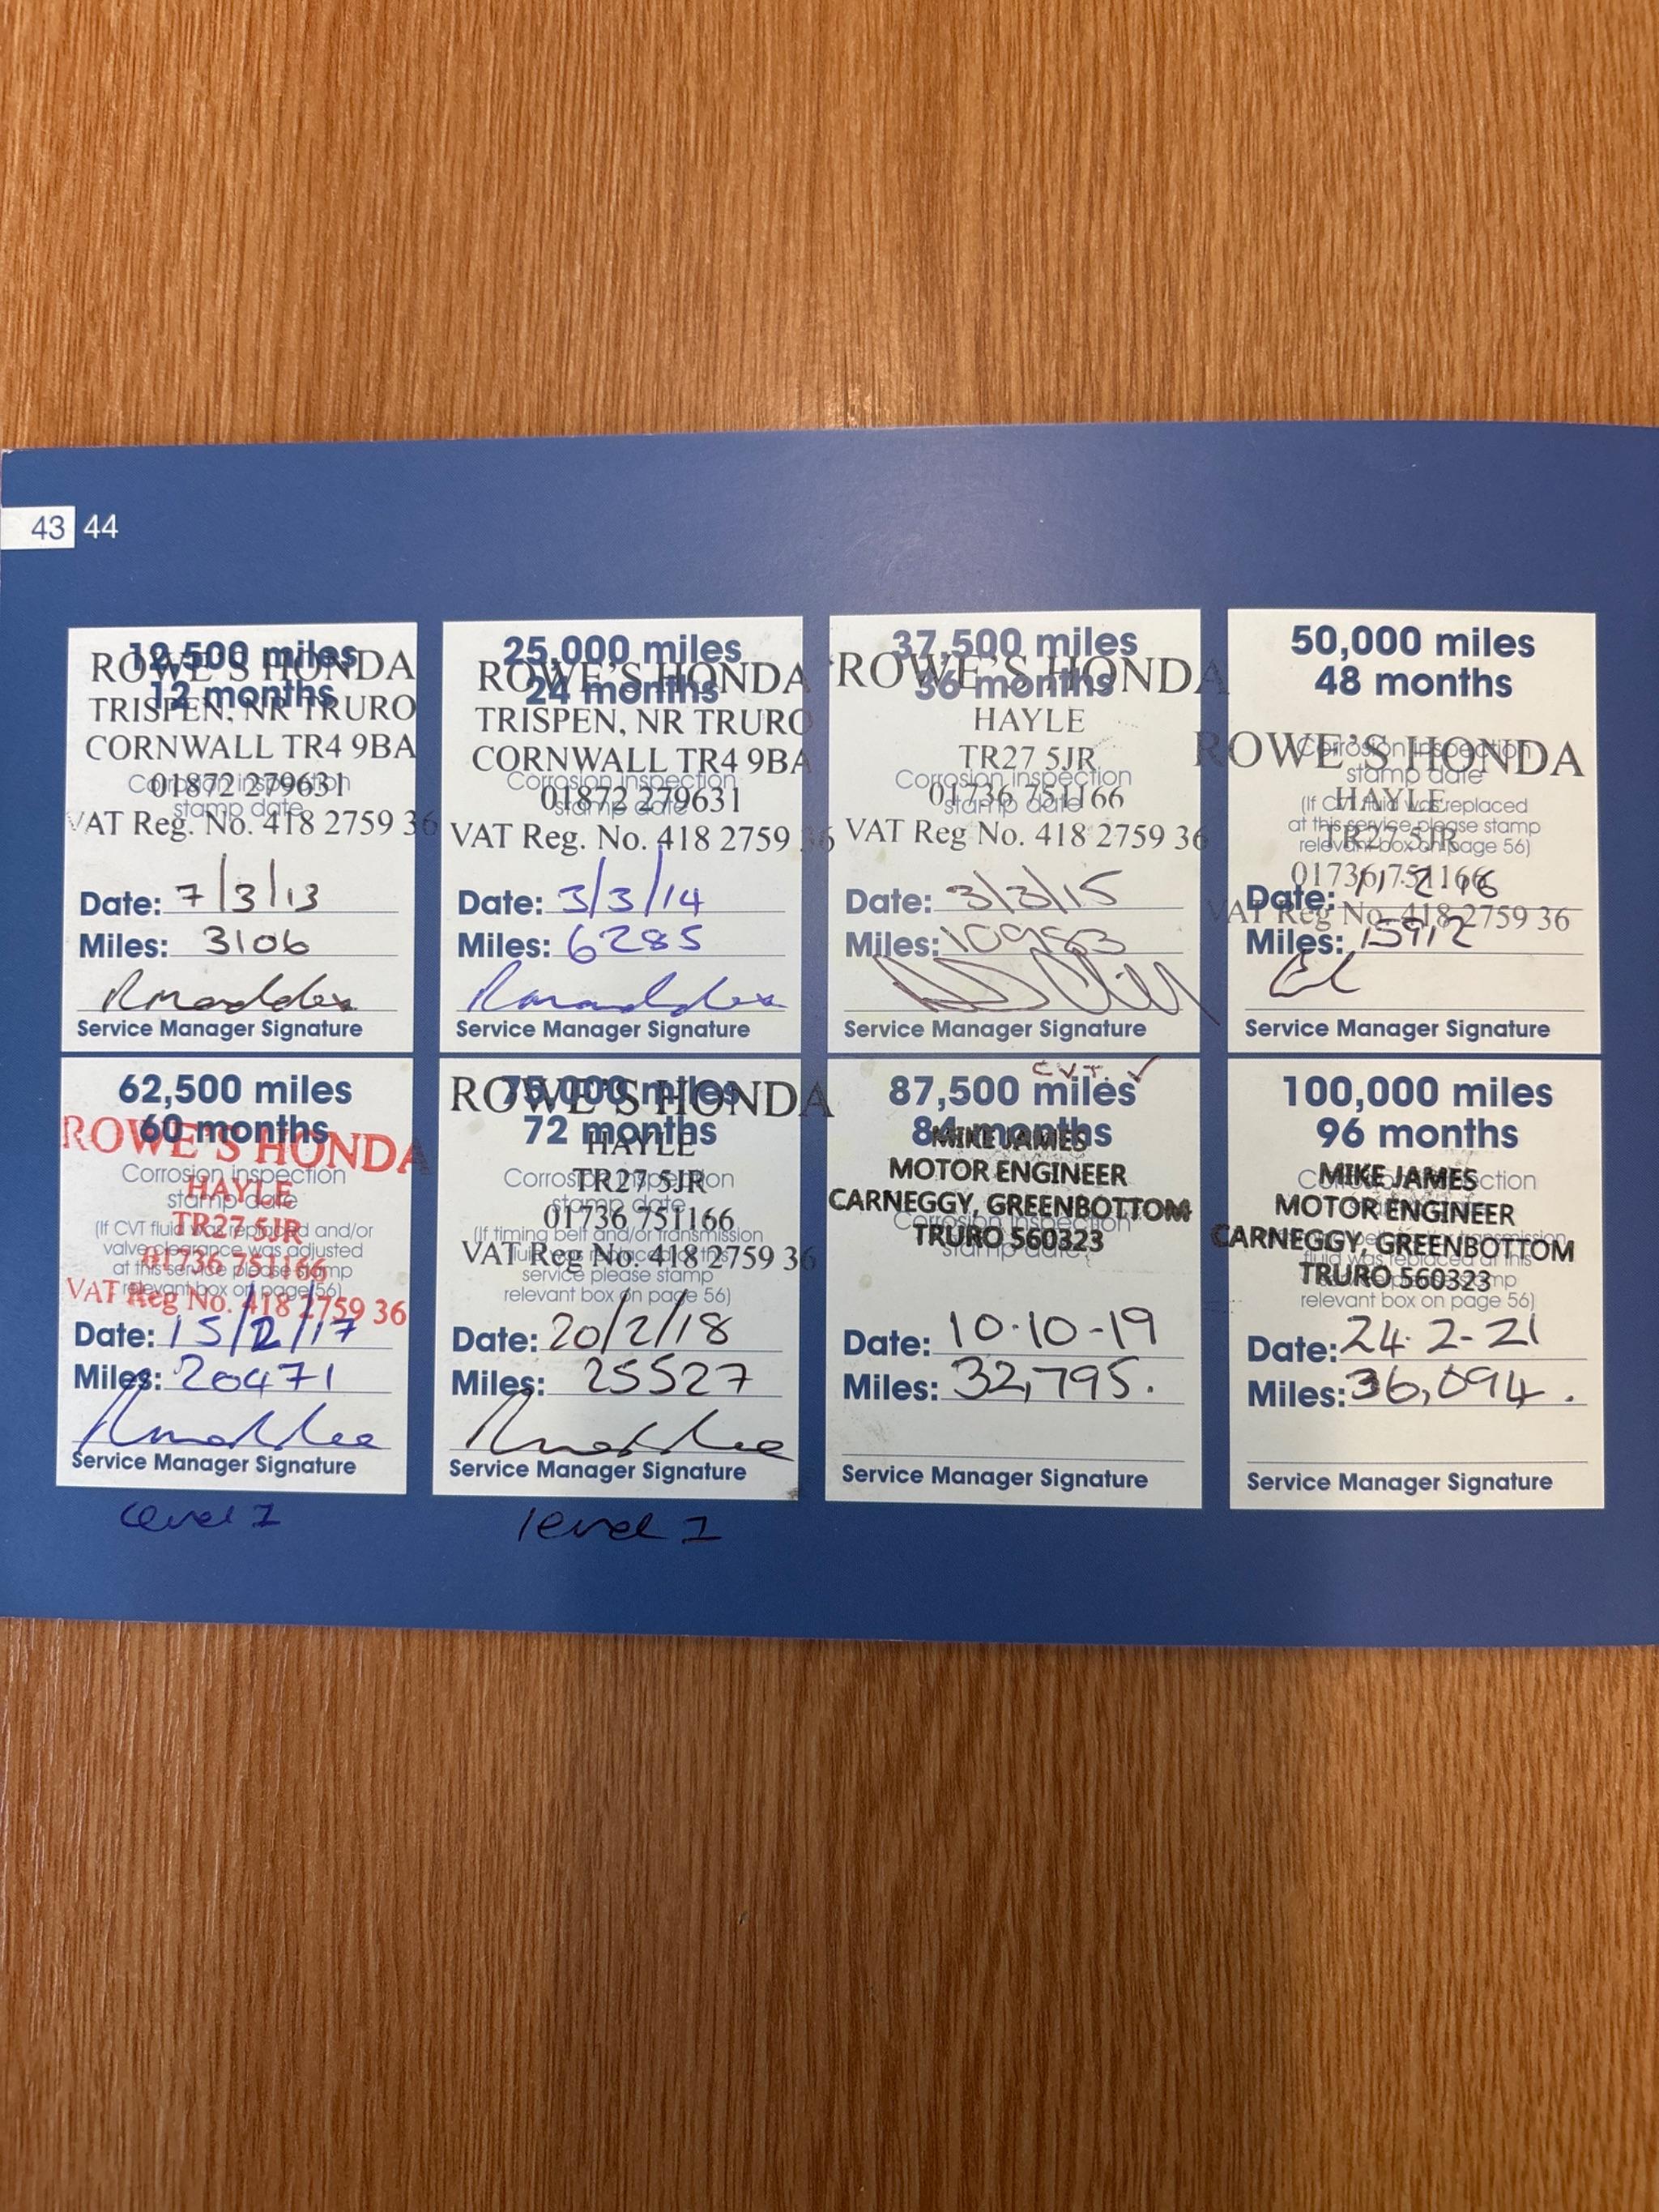 43 44
12,500 miles
12 months
ROWE'S HONDA
TRISPEN, NR TRURO
CORNWALL TR4 9BA
Corrosion inspection
stamp date
01872 279631
VAT Reg. No. 418 2759 36
Date: 7/3/13
Miles: 3106
Service Manager Signature
25,000 miles
24 months
ROWE'S HONDA
TRISPEN, NR TRURO
CORNWALL TR4 9BA
Corrosion inspection
stamp date
01872 279631
VAT Reg. No. 418 2759 36
Date: 3/3/14
Miles: 6285
Service Manager Signature
37,500 miles
36 months
ROWE'S HONDA
HAYLE
TR27 5JR
Corrosion inspection
stamp date
01736 751166
VAT Reg No. 418 2759 36
Date: 3/3/15
Miles: 10953
Service Manager Signature
50,000 miles
48 months
Corrosion inspection
stamp date
(If CVT fluid was replaced
at this service please stamp
relevant box on page 56)
ROWE'S HONDA
HAYLE
TR27 5JR
01736 751166
VAT Reg No. 418 2759 36
Date: 2 16
Miles: 15912
Service Manager Signature
62,500 miles
60 months
ROWE'S HONDA
HAYLE
TR27 5JR
01736 751166
VAT Reg No. 418 2759 36
Corrosion inspection
stamp date
(If CVT fluid was replaced and/or
valve clearance was adjusted
at this service please stamp
relevant box on page 56)
Date: 15/2/17
Miles: 20471
Service Manager Signature
level 1
75,000 miles
72 months
ROWE'S HONDA
HAYLE
TR27 5JR
01736 751166
VAT Reg No. 418 2759 36
Corrosion inspection
stamp date
(If timing belt and/or transmission
fluid was replaced at this
service please stamp
relevant box on page 56)
Date: 20/2/18
Miles: 25527
Service Manager Signature
level 1
C.V.T. ✓
87,500 miles
84 months
MIKE JAMES
MOTOR ENGINEER
CARNEGGY, GREENBOTTOM
TRURO 560323
Corrosion inspection
stamp date
Date: 10·10-19
Miles: 32,795.
Service Manager Signature
100,000 miles
96 months
MIKE JAMES
MOTOR ENGINEER
CARNEGGY, GREENBOTTOM
TRURO 560323
Corrosion inspection
transmission
fluid was replaced at this
relevant box on page 56)
Date: 24·2-21
Miles: 36,094.
Service Manager Signature